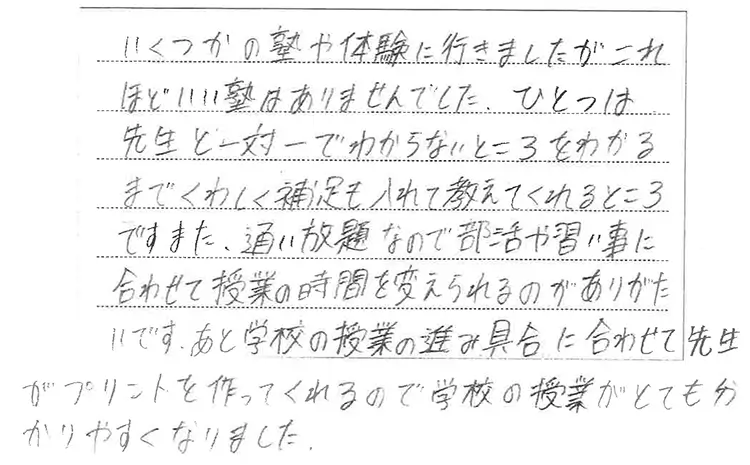 いくつかの塾や体験に行きましたがこれ
ほどいい塾はありませんでした。ひとつは
先生と一対一でわからないところをわかる
までくわしく補足も入れて教えてくれるところ
ですまた、通い放題なので部活や習い事に
合わせて授業の時間を変えられるのがありがた
いです。あと学校の授業の進み具合に合わせて先生
がプリントを作ってくれるので学校の授業がとても分
かりやすくなりました。